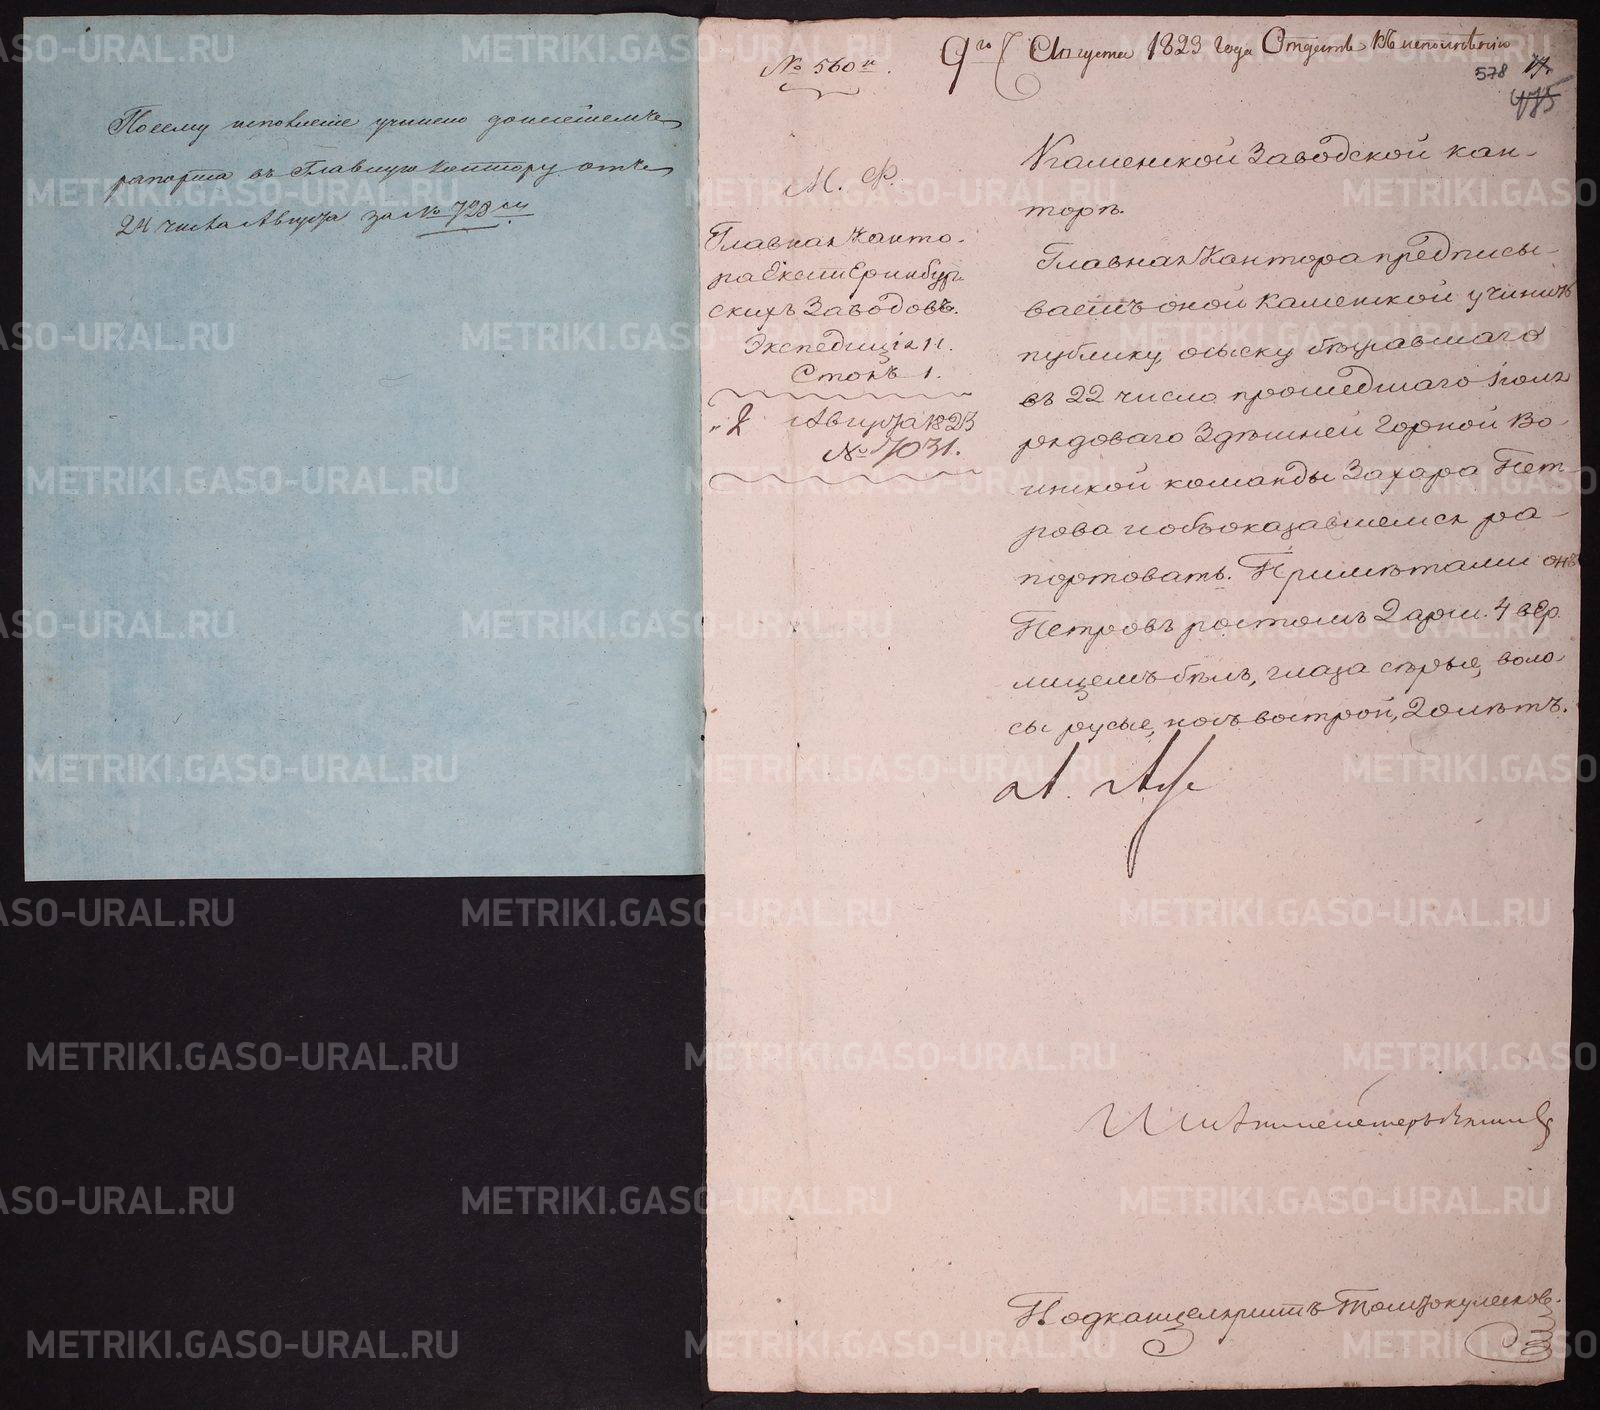 Посему исполнение учинено донесением
рапорта въ Главную контору отъ
24 числа Августа за № 728 м
№ 560 и.
9го Августа 1823 года Отдать къ исполнению
578
475
М. Ф.
Главная Канто-
ра Екатеринбург-
скихъ Заводовъ.
Экспедиція 11.
Столъ 1.
"2 Августа 1823
№ 7031.
Каменской Заводской кан-
торѣ.
Главная Кантора предписы-
ваетъ оной Каменской учинить
публику о сыску бѣжавшаго
въ 22 число прошедшаго Іюля
рядоваго здѣшней Горной Во-
инской команды Захара Пет-
рова и объ оказавшемся ра-
портовать. Примѣтами онъ
Петровъ ростомъ 2 арш. 4 вер.
лицемъ бѣлъ, глаза сѣрые, воло-
сы русые, носъ вострой, 20 лѣтъ.
Подканцеляристъ
METRIKI.GASO-URAL.RU